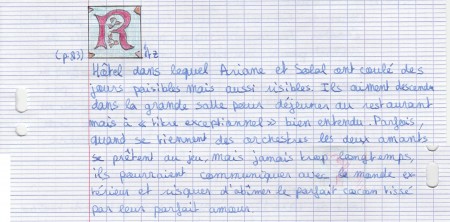 (p.83) R itz
Hôtel dans lequel Ariane et Solal ont coulé des
jours paisibles mais aussi risibles. Ils aiment descendre
dans la grande salle pour déjeuner au restaurant
mais à « titre exceptionnel » bien entendu. Parfois,
quand se tiennent des orchestres les deux amants
se prêtent au jeu, mais jamais trop longtemps,
ils pourraient communiquer avec le monde ex-
térieur et risquer d'abîmer le parfait cocon tissé
par leur parfait amour.